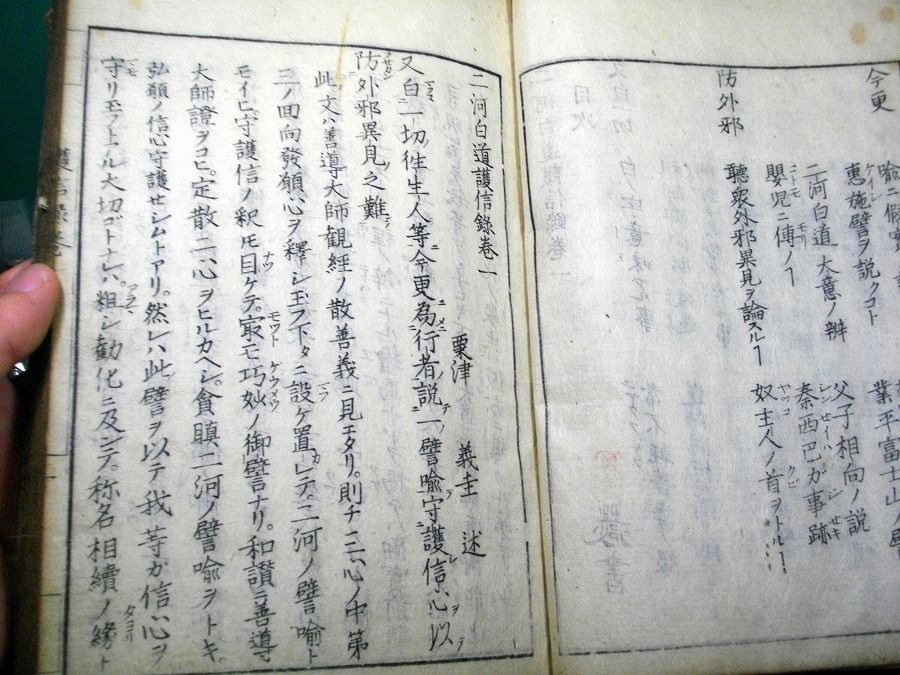 今更
業平富士山ノ譬
惠施譬ヲ説クコト
父子相向ノ説
二河白道大意ノ辨
秦西巴ガ事跡
嬰児ニ傳ノヿ
奴主人ノ首ヲトルヿ
防外邪
聽衆外邪異見ヲ論スルヿ
二河白道護信錄卷一
粟津 義圭 述
又白一切徃生人等今更為行者説一譬喻守護信心以
防外邪異見之難
此文ハ善導大師観經ノ散善義ニ見エタリ。則チ三心ノ中第
三ノ回向發願心ヲ釋シ玉フ下タニ設ケ置レテ。二河ノ譬喻ト
モイヒ。守護信ノ釈モ目ケテ。㝡モ巧妙ノ御譬ナリ。和讃ニ善導
大師證ヲコヒ。定散二心ヲヒルカヘシ。貪瞋二河ノ譬喻ヲトキ。
弘願ノ信心守護セシムトアリ。然レハ此譬ヲ以テ我等カ信心ヲ
守リモフトル大切ゴトナレハ。粗シ勧化ニ及ンテ。称名相續ノ縁ト